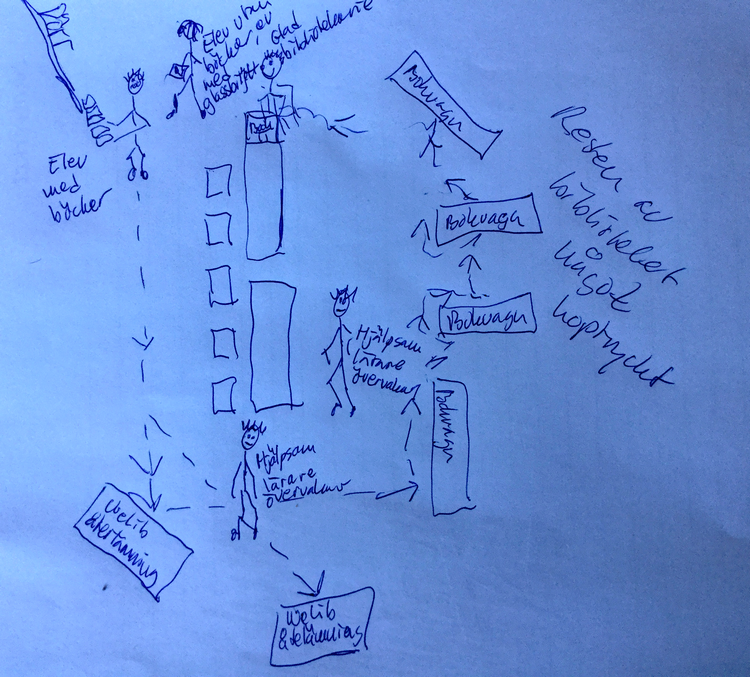 Elev utan
böcker av
med
glassbijett
glad
bibliotekarie
Elev
med
böcker
Bokvagn
Bokvagn
Bokvagn
Bokvagn
Resten av
biblioteket
något
hoptryckt
Hjälpsam
lärare
övervakar
Hjälpsam
lärare
övervakar
Welib
Welib